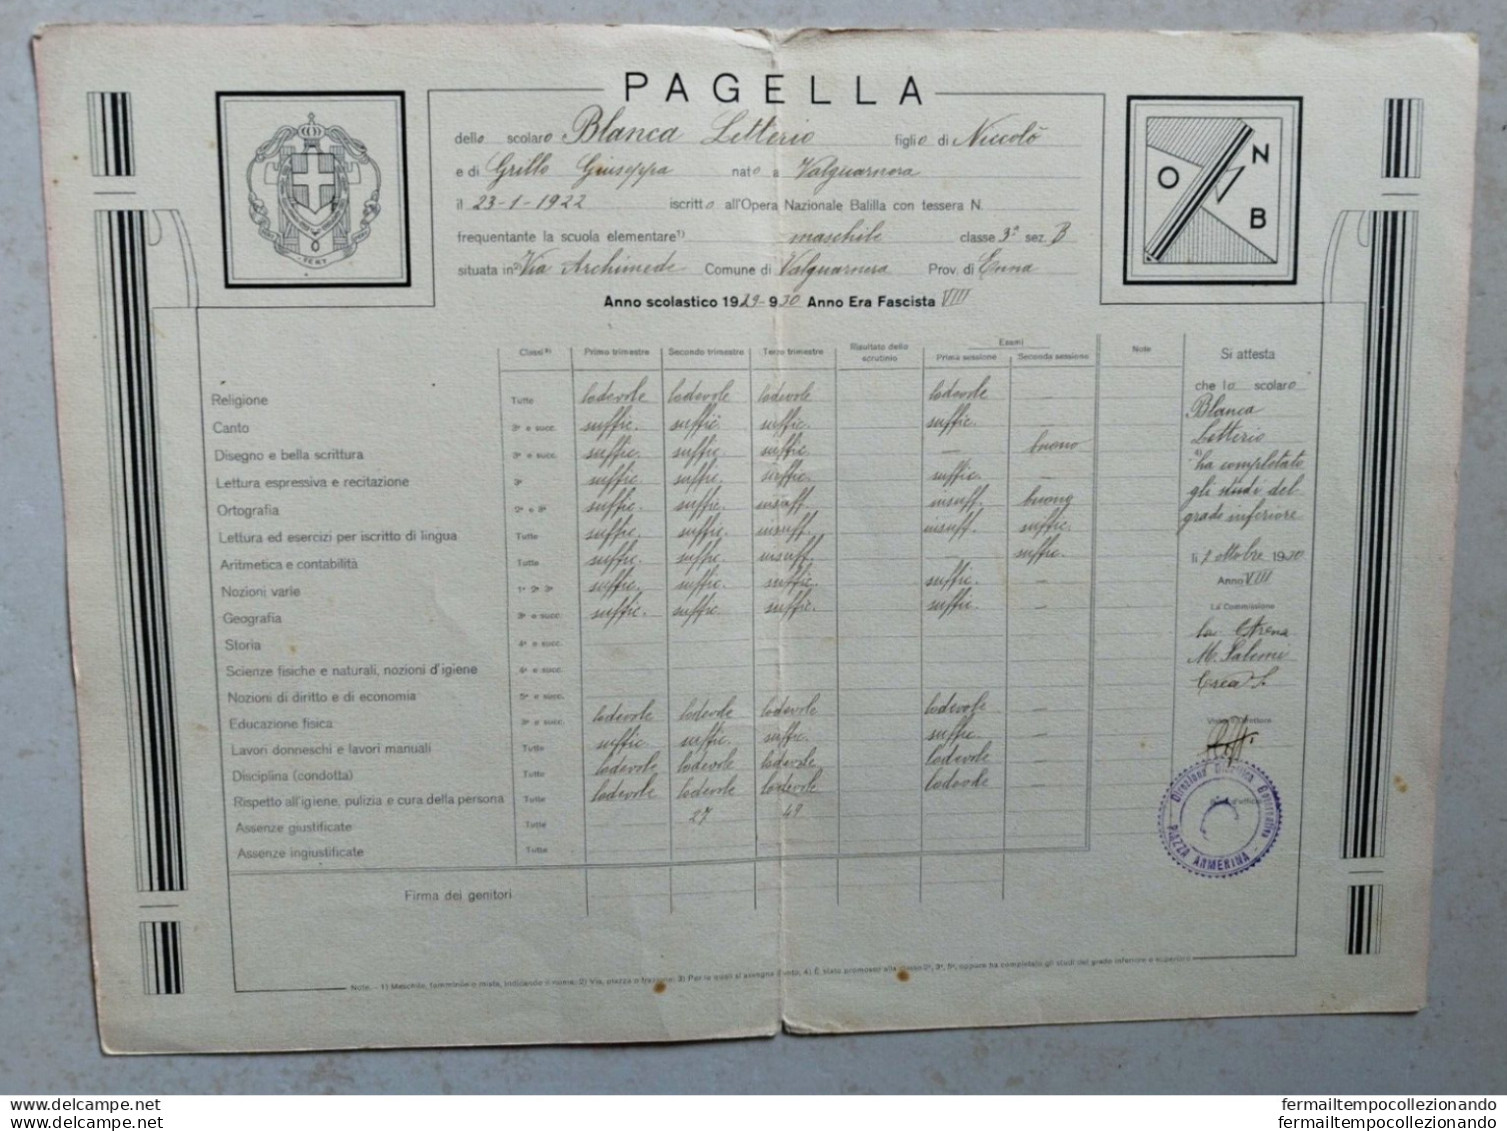 PAGELLA
dello scolaro Blanca Letterio figlio di Niccolò
e di Grillo Giuseppa nato a Valguarnera
il 23-1-1922 iscritto all'Opera Nazionale Balilla con tessera N.
frequentante la scuola elementare 1) maschile classe 3ª sez. B
situata in 2) Via Archimede Comune di Valguarnera Prov. di Enna
Anno scolastico 1929-930 Anno Era Fascista VIII
O N B
FERT
Classi Primo trimestre Secondo trimestre Terzo trimestre Risultato dello scrutinio Esami Prima sessione Seconda sessione Note
Religione Tutte lodevole lodevole lodevole lodevole
Canto 3ª e succ. suffic. suffic. suffic. suffic. —
Disegno e bella scrittura 3ª e succ. suffic. suffic. suffic. — buono
Lettura espressiva e recitazione 3ª suffic. suffic. suffic. suffic. —
Ortografia 2ª e 3ª suffic. suffic. insuff. insuff. buono
Lettura ed esercizi per iscritto di lingua Tutte suffic. suffic. insuff. insuff. suffic.
Aritmetica e contabilità Tutte suffic. suffic. insuff. — suffic.
Nozioni varie 1ª 2ª 3ª suffic. suffic. suffic. suffic. —
Geografia 3ª e succ. suffic. suffic. suffic. suffic. —
Storia 4ª e succ.
Scienze fisiche e naturali, nozioni d'igiene 4ª e succ.
Nozioni di diritto e di economia 5ª e succ.
Educazione fisica 3ª e succ. lodevole lodevole lodevole lodevole —
Lavori donneschi e lavori manuali Tutte suffic. suffic. suffic. suffic. —
Disciplina (condotta) Tutte lodevole lodevole lodevole lodevole —
Rispetto all'igiene, pulizia e cura della persona Tutte lodevole lodevole lodevole lodevole —
Assenze giustificate Tutte 27 49
Assenze ingiustificate Tutte
Firma dei genitori
Si attesta
che lo scolaro
Blanca
Letterio
4) ha completato
gli studi del
grado inferiore
lì 1 ottobre 1930
Anno VIII
La Commissione
M. Salemi
Visto: Il Direttore
Direzione Didattica Governativa
PIAZZA ARMERINA
Note. - 1) Maschile, femminile o mista, indicando il nome; 2) Via, piazza o frazione; 3) Per le classi si assegna il voto; 4) È stato promosso alla classe 2ª, 3ª, 5ª, oppure ha completato gli studi del grado inferiore o superiore
www.delcampe.net
www.delcampe.net
fermailtempocollezionando
fermailtempocollezionando